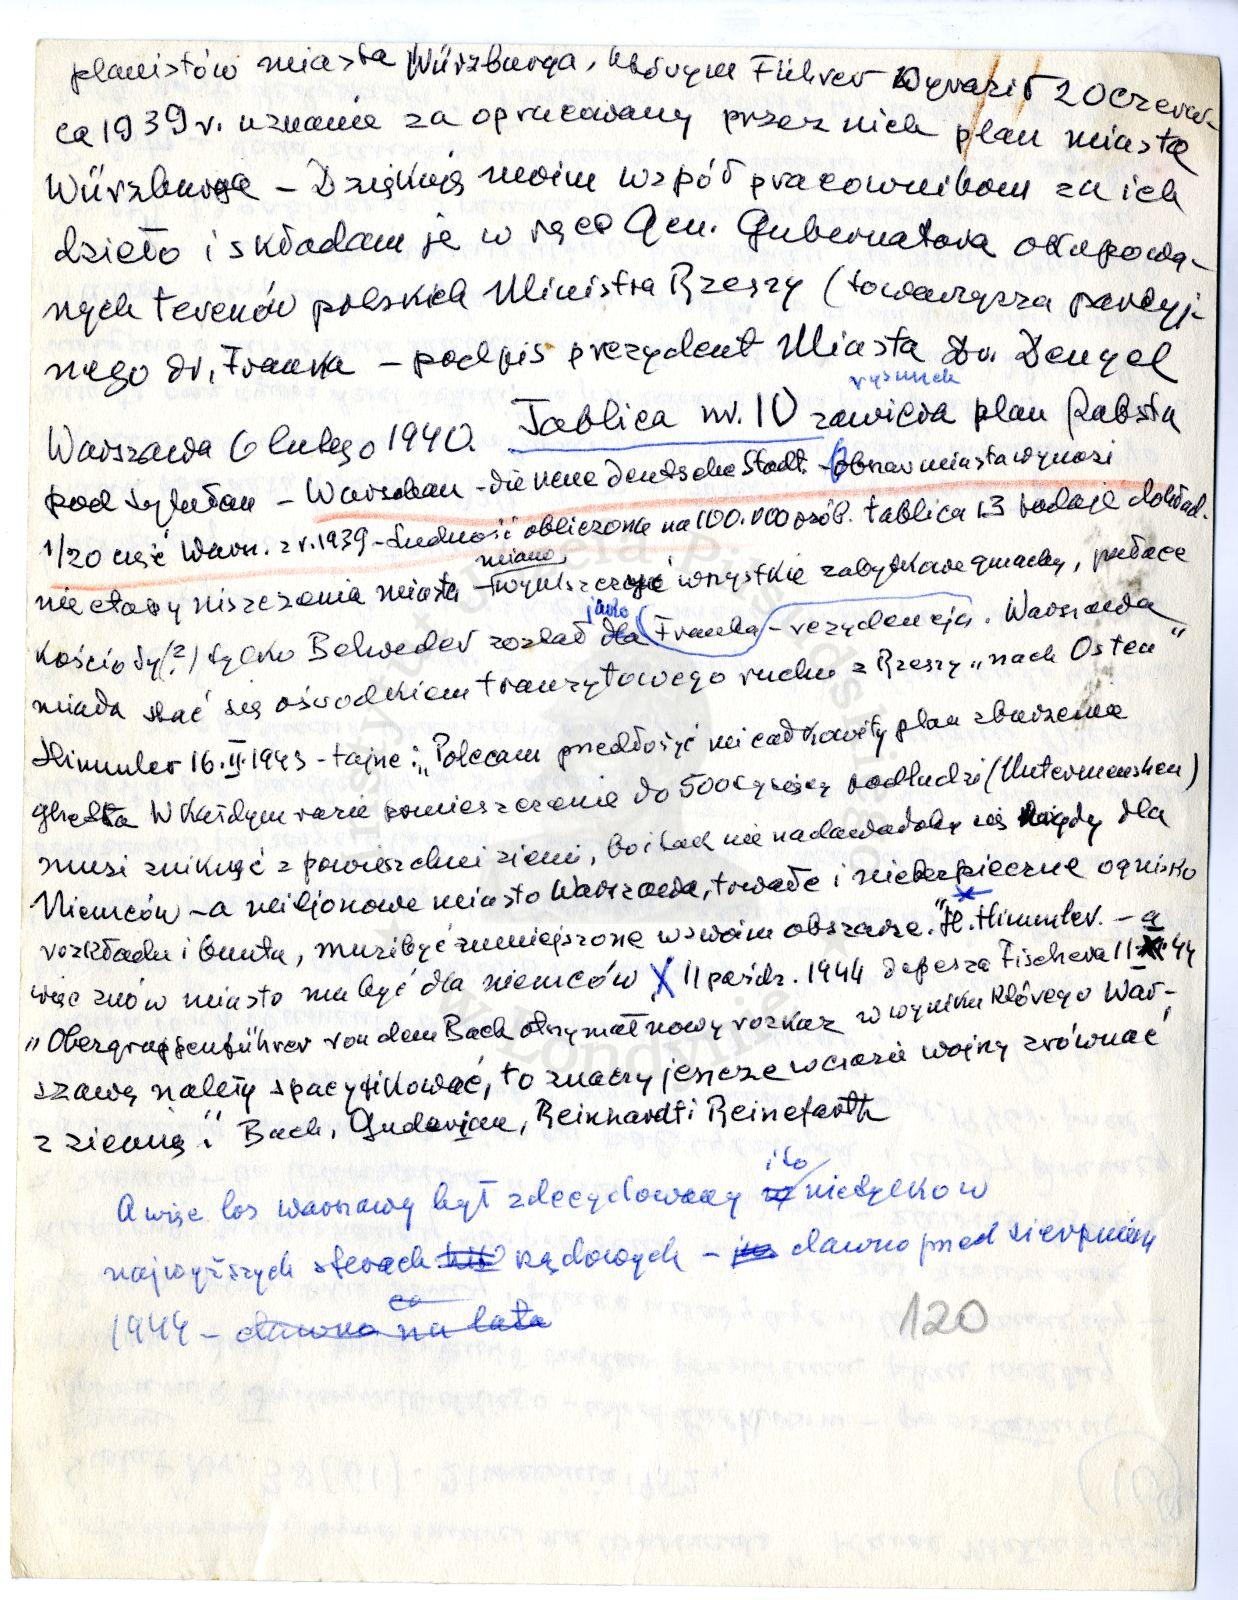 planistów miasta Würzburga, którym Führer wyraził 20 czerw-
ca 1939 r. uznanie za opracowany przez nich plan miasta
Würzburga – Dziękuję moim współpracownikom za ich
dzieło i składam je w ręce Gen. Gubernatora okupowa-
nych terenów polskich Ministra Rzeszy (towarzysza partyj-
nego dr. Franka – podpis prezydent Miasta Dr. Dengel
rysunek
Warszawa 6 lutego 1940. Tablica nr. 10 zawiera plan Pabsta
pod tytułem – Warschau – die neue deutsche Stadt – Obszar miasta wynosi
1/20 część Warsz. z r. 1939 – Ludność obliczona na 100.000 osób. tablica 13 podaje dokład-
miano
nie etapy niszczenia miasta – wyniszczyć wszystkie zabytkowe gmachy, pałace
jako
Kościoły (?) tylko Belweder został dla Franka – rezydencja. Warszawa
miała stać się ośrodkiem tranzytowego ruchu z Rzeszy „nach Osten"
Himmler 16.II.1943 – tajne: „Polecam przedłożyć mi całkowity plan zburzenia
ghetta W każdym razie pomieszczenie do 500 tysięcy podludzi (Untermenshen)
musi zniknąć z powierzchni ziemi, bo i tak nie nadawałoby się nigdy dla
Niemców – a miljonowe miasto Warszawa, trwałe i niebezpieczne ognisko
rozkładu i buntu, musi być zmniejszone w swoim obszarze." H. Himmler. – a
więc znów miasto ma być dla niemców X 11 paźdz. 1944 depesza Fischera 11 44
„Obergruppenführer von dem Bach otrzymał nowy rozkaz w wyniku którego War-
szawę należy spacyfikować, to znaczy jeszcze w czasie wojny zrównać
z ziemią" Bach, Guderian, Reinhardt i Reinefarth
i to
A więc los warszawy był zdecydowany nie tylko w
najwyższych sferach rządowych – dawno przed sierpniem
1944 – dawno na lata
120